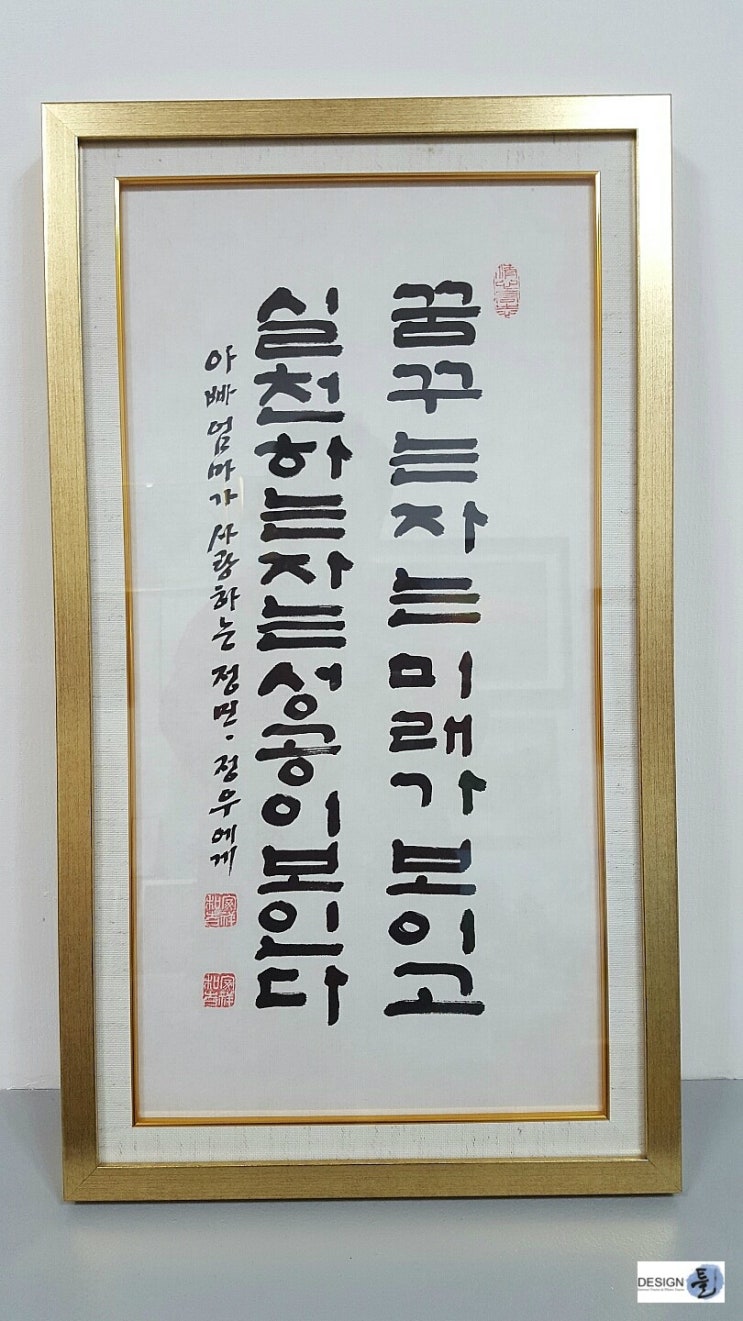 꿈꾸는자는미래가보이고
실천하는자는성공이보인다
아빠엄마가 사랑하는 정민·정우에게
家祥
和吉
家祥
和吉
DESIGN 틀